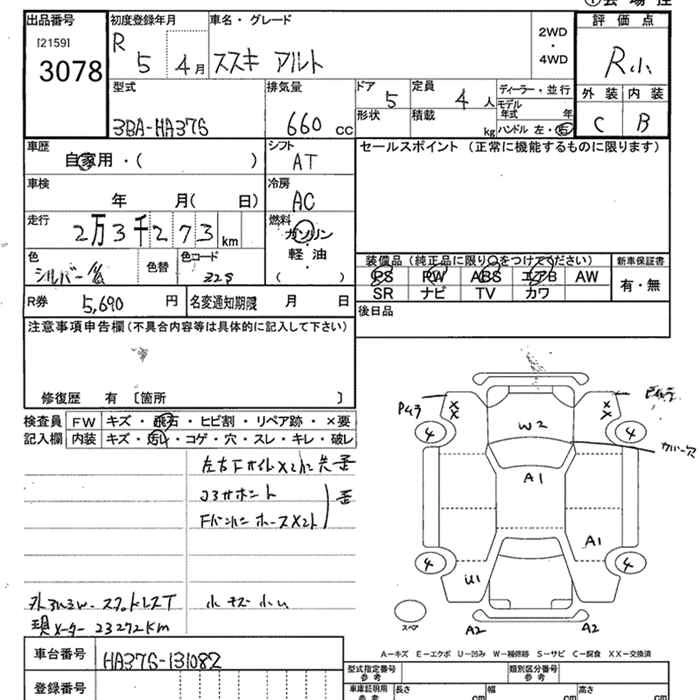 出品番号
[2159]
3078
初度登録年月
R 5 4月
車名・グレード
スズキ アルト
2WD
・
4WD
評価点
R小
外装 内装
C B
型式
3BA-HA37S
排気量
660 cc
ドア
5
定員
4 人
形状
積載
kg
ディーラー・並行
モデル
年式 年
ハンドル 左・右
車歴
自家用・( )
シフト
AT
セールスポイント (正常に機能するものに限ります)
車検
年 月( 日)
冷房
AC
走行
2万3千273 km
燃料
ガソリン
・
軽油
( )
色
シルバー
色替
色コード
装備品 (純正品に限り○をつけてください)
新車保証書
PS PW ABS エアB AW
SR ナビ TV カワ
有・無
R券 5,690 円
名変通知期限 月 日
後日品
注意事項申告欄(不具合内容等は具体的に記入して下さい)
修復歴 有 〔箇所 〕
検査員
記入欄
FW キズ・飛石・ヒビ割・リペア跡・×要
内装 キズ・汚レ・コゲ・穴・スレ・キレ・破レ
現メーター 23272KM
小キズ小凹
車台番号
HA37S-131082
登録番号
XX
XX
4
4
W2
A1
A1
4
4
U1
スペア
A2
A2
A-キズ E-エクボ U-凹み W-補修跡 S-サビ C-腐食 XX-交換済
型式指定番号
参考
類別区分番号
参考
車庫証明用
参考
長さ cm
幅 cm
高さ cm